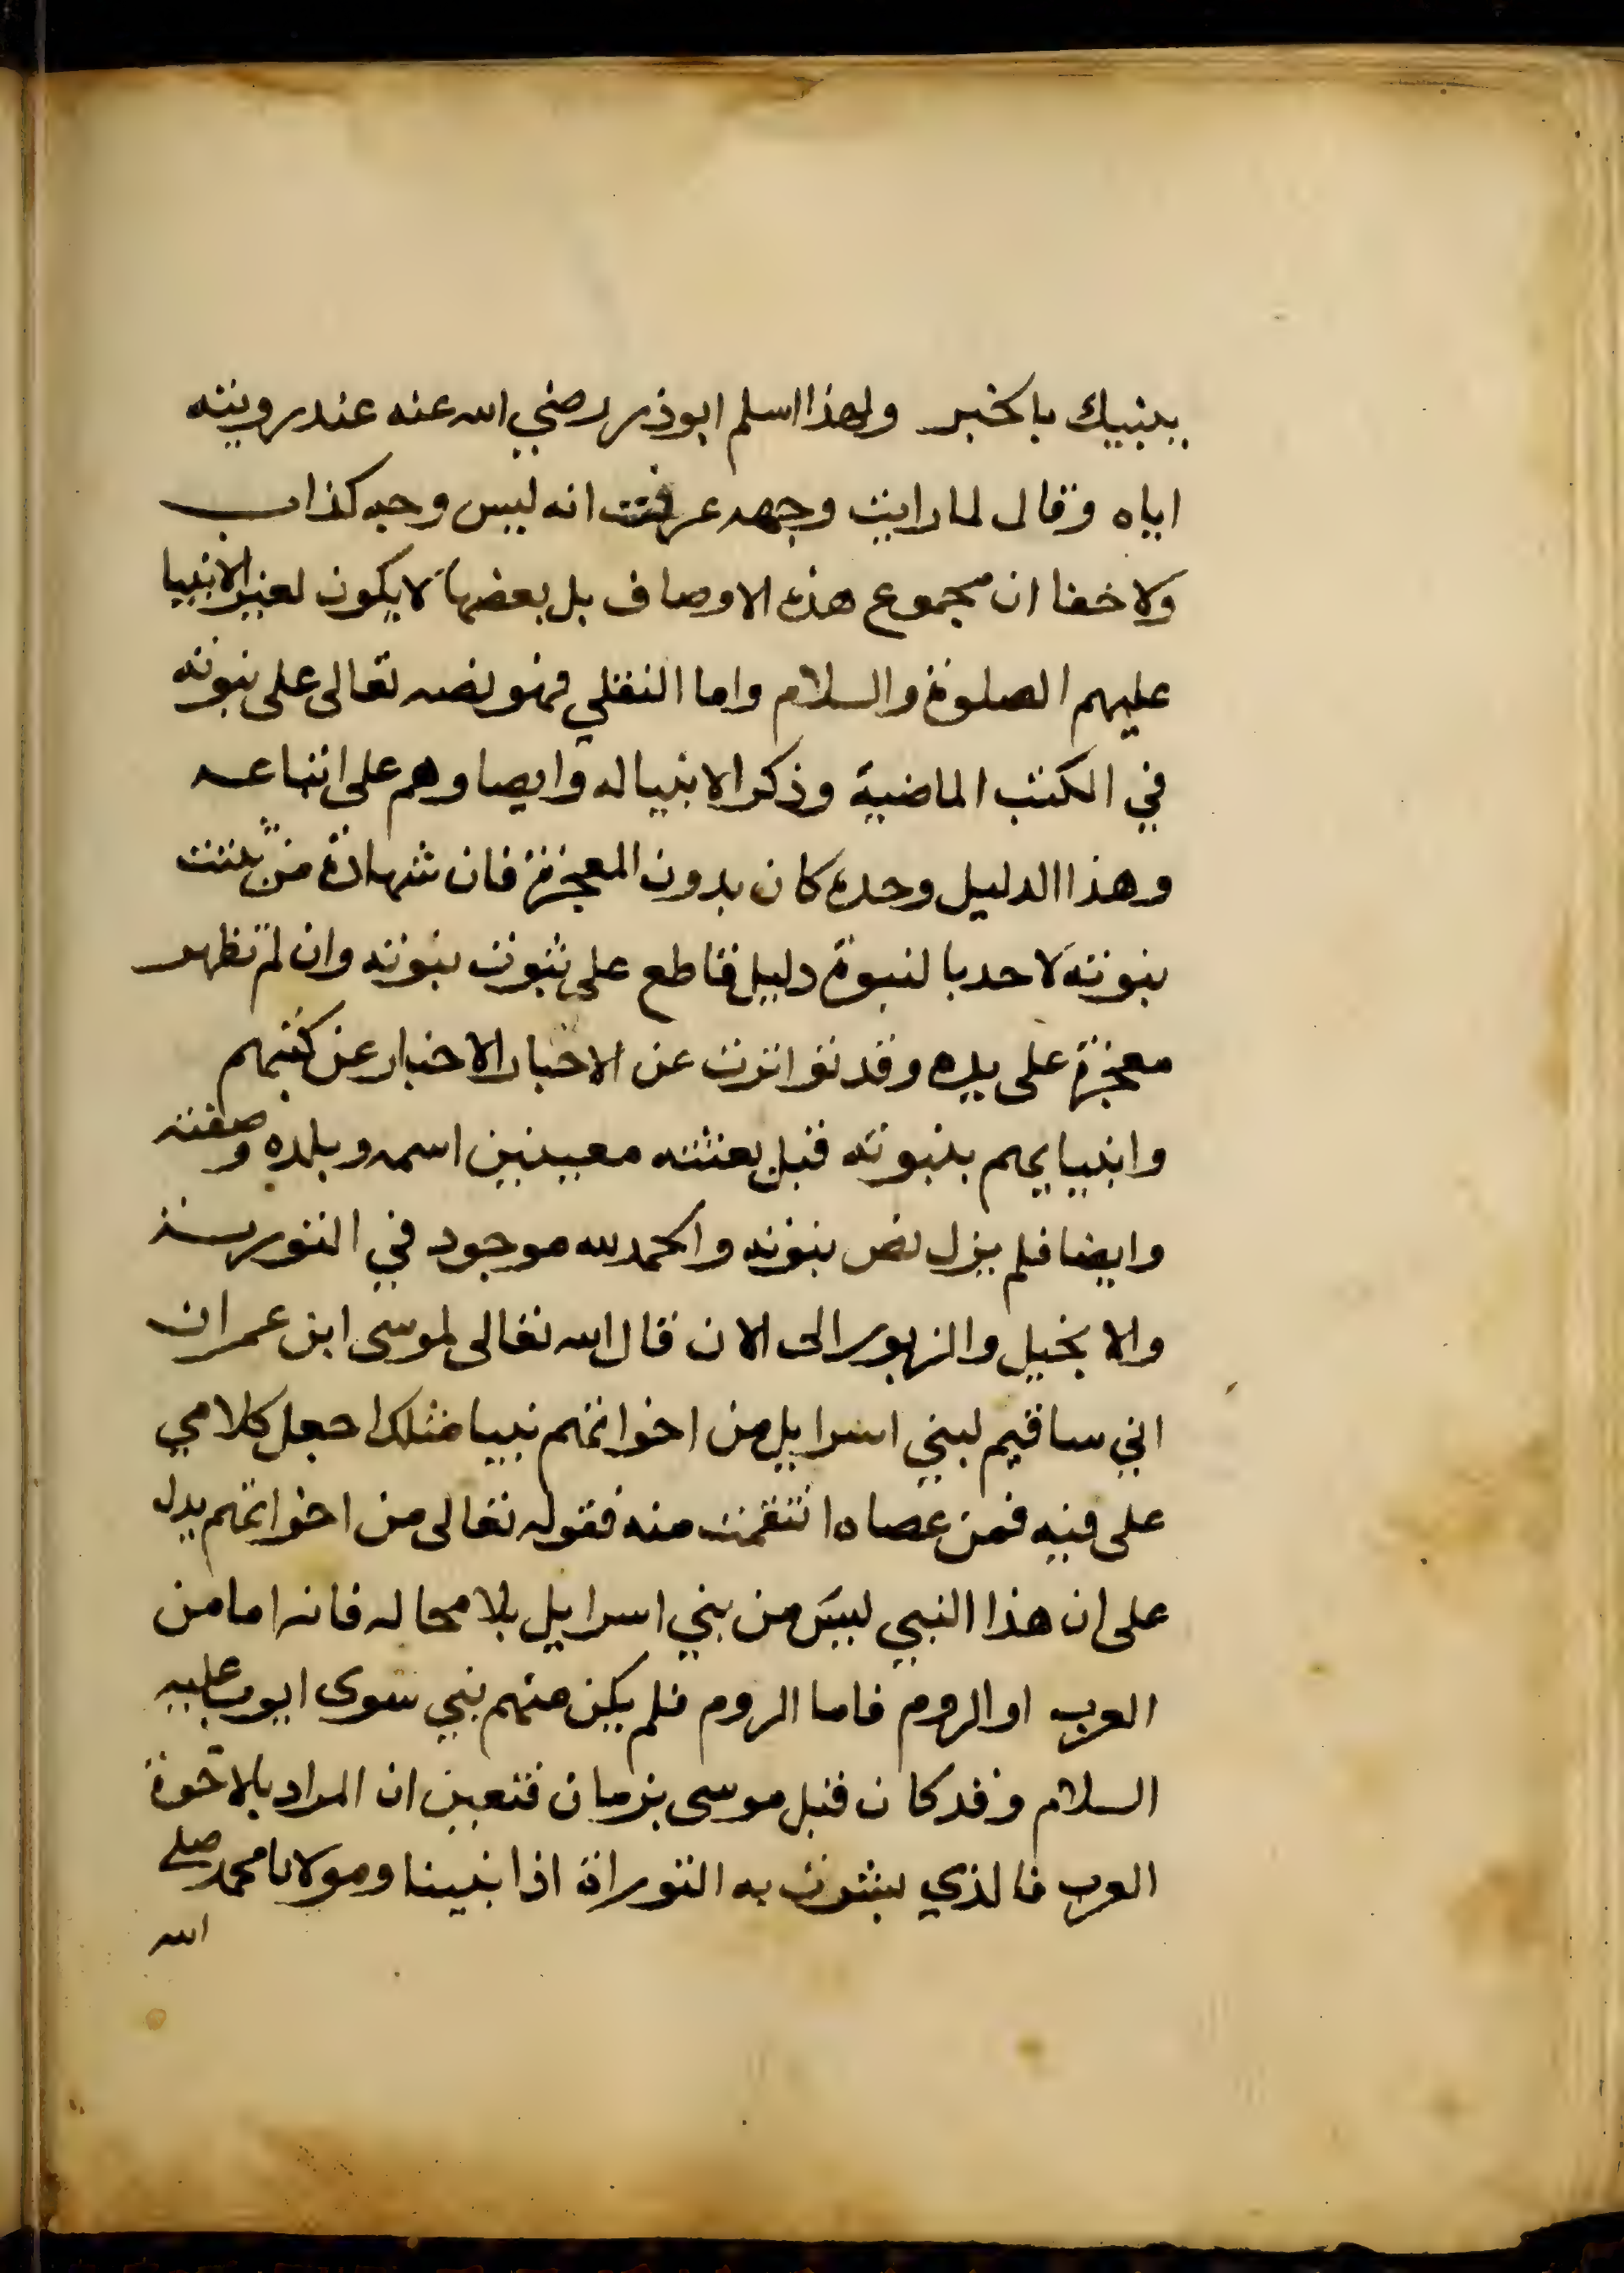 ينبيك بالخبر ولهذا اسلم ابوذر رضي الله عنه عند رويته
اياه وقال لما رايت وجهه عرفت انه ليس وجه كذاب
ولا خفا ان مجموع هذه الاوصاف بل بعضها لا يكون لغير الانبيا
عليهم الصلوة والسلام واما النقلي فهو نصه تعالى على نبوته
في الكتب الماضية وذكر الانبيا له وايصاوهم على اتباعه
وهذا الدليل وحده كان بدون المعجزة فان شهادة من ثبتت
نبوته لاحد بالنبوة دليل قاطع على ثبوت نبوته وان لم تظهر
معجزة على يده وقد تواترت عن الاحبار الاخبار عن كتبهم
وانبيايهم بنبوته قبل بعثته معينين اسمه وبلده وصفته
وايضا فلم يزل نص نبوته والحمد لله موجود في التورية
والانجيل والزبور الى الان قال الله تعالى لموسى ابن عمران
اني ساقيم لبني اسرايل من اخوانهم نبيا مثلك اجعل كلامي
على فيه فمن عصاه انتقمت منه فقوله تعالى من اخوانهم يدل
على ان هذا النبي ليس من بني اسرايل بلا محاله فانه اما من
العرب او الروم فاما الروم فلم يكن منهم نبي سوى ايوب عليه
السلام وقد كان قبل موسى بزمان فتعين ان المراد بالاخوة
العرب فالذي بشرت به التوراة اذا نبينا ومولانا محمد صلى
الله